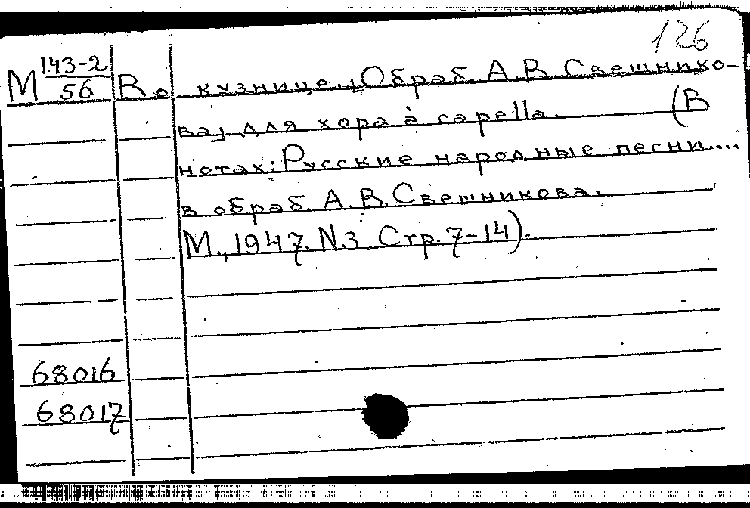 126
М 143-2/56 Во кузнице. [Обраб. А.В. Свешнико-
ва] для хора à capella. (В
нотах: Русские народные песни....
в обраб. А.В. Свешникова.
М., 1947. N.3 Стр. 7-14).
68016
68017